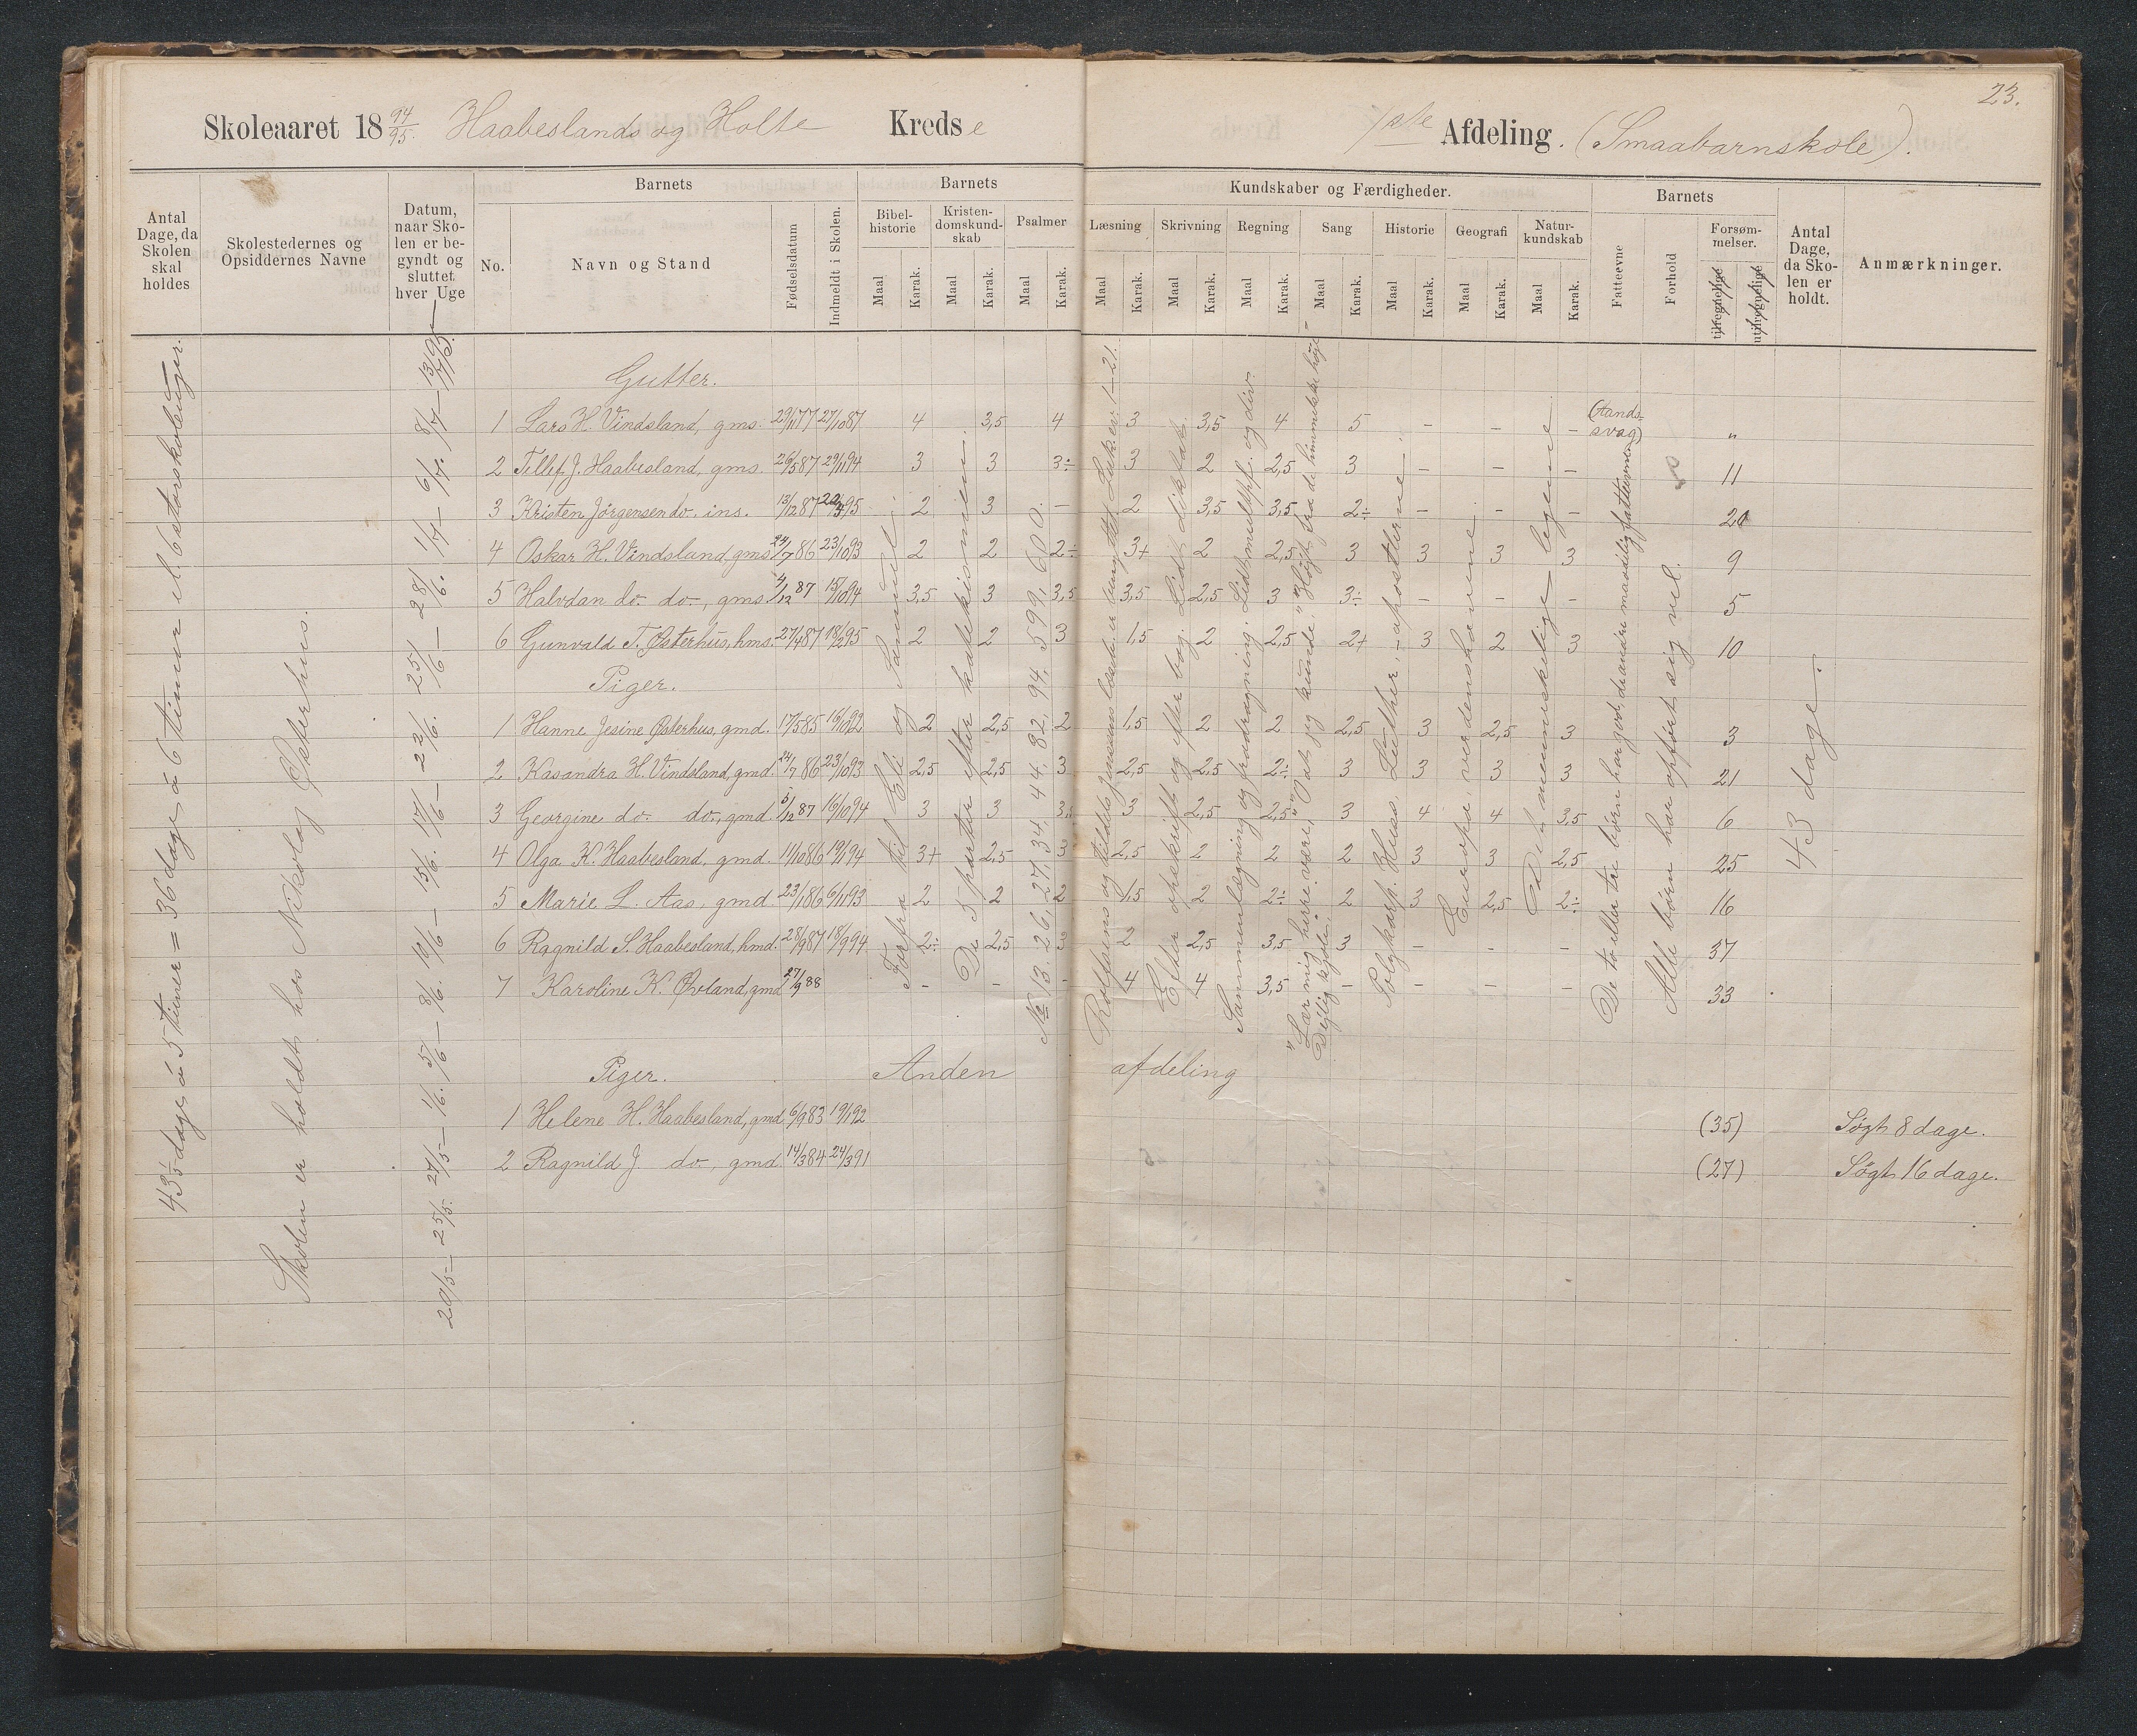 23.
Skoleaaret 18 94/95. Haabeslands og Holte Kredse
1ste Afdeling. (Smaabarnskole).
Antal Dage, da Skolen skal holdes
Skolestedernes og Opsiddernes Navne
Datum, naar Skolen er begyndt og sluttet hver Uge
Barnets
No.
Navn og Stand
Fødselsdatum
Indmeldt i Skolen.
Barnets
Bibelhistorie
Kristendomskundskab
Psalmer
Kundskaber og Færdigheder.
Læsning
Skrivning
Regning
Sang
Historie
Geografi
Naturkundskab
Maal Karak. Maal Karak. Maal Karak. Maal Karak. Maal Karak. Maal Karak. Maal Karak. Maal Karak. Maal Karak. Maal Karak.
Barnets
Fatteevne
Forhold
Forsømmelser.
tilregnelige
utilregnelige
Antal Dage, da Skolen er holdt.
Anmærkninger.
43 1/5 dage à 5 timer = 36 dage à 6 timer el. 6 storskoleuger.
Skolen er holdt hos Nikolay Østerhus.
20/5 – 25/5. 27/5 – 1/6. 5/6 – 8/6. 10/6 – 15/6. 17/6 – 22/6. 25/6 – 28/6. 1/7 – 6/7. 8/7 –
Gutter.
1 Lars H. Vindsland, gms. 29/11 77 27/10 87 4 3,5 4 3 3,5 4 5 – – – (tandssvag) "
2 Tellef J. Haabesland, gms. 26/5 87 29/11 94 3 3 3÷ 3 2 2,5 3 – – – 11
3 Kristen Jörgensen do. ins. 13/12 87 95 2 3 – 2 3,5 3,5 2÷ – – –
4 Oskar H. Vindsland, gms. 24/7 86 23/10 93 2 2 2÷ 3+ 2 2,5 3 3 3 3 9
5 Halvdan do. do., gms. 4/12 87 15/10 94 3,5 3 3,5 3,5 2,5 3 3÷ – – – 5
6 Gunvald T. Østerhus, hms. 27/4 87 18/2 95 2 2 3 1,5 2 2,5 2+ 3 2 3 10
Piger.
1 Hanne Jesine Østerhus, gmd. 17/5 85 16/10 92 2 2,5 2 1,5 2 2 2,5 3 2,5 3 3
2 Kasandra H. Vindsland, gmd. 24/7 86 23/10 93 2,5 2,5 3 2,5 2,5 2÷ 3 3 3 3 21
3 Georgine do. do., gmd. 5/12 87 16/10 94 3 3 3,5 3 2,5 2,5 3 4 4 3,5 6
4 Olga K. Haabesland, gmd. 11/10 86 19/1 94 3+ 2,5 3 2,5 2 2 2 3 3 2,5 25
5 Marie L. Aas, gmd. 23/1 86 6/11 93 2 2 2 1,5 2 2÷ 2 3 2,5 2÷ 16
6 Ragnild S. Haabesland, hmd. 28/9 87 18/9 94 2÷ 2,5 3 2 2,5 3,5 3 – – – 37
7 Karoline K. Øvland, gmd 27/9 88 – – – 4 4 3,5 – – – – 33
Forfra til Eli og Samuel.
De 5 parter efter katekismen.
No 13, 26, 27, 34, 44, 82, 94, 599, 600.
Rolfsens og læseb. Luk. ev. 1–21.
Efter opskrift og efter bog. Lidt diktat.
Sammenlægning og fradragning. Lidt multipl. og div.
"Lær mig herre være", "O at jeg kunde", "Højt fra det himmelske høje"
Dejlig er jorden.
Polykarp, Huss, Luther, apostlerne.
Europa, verdenshavene.
Det menneskelige legeme.
De to eller tre børn har god, de andre maadelig fatteevne.
Alle børn har opført sig vel.
43 dage.
Anden afdeling
Piger.
1 Helene H. Haabesland, gmd 6/9 83 19/1 92 (35) Søgt 8 dage.
2 Ragnild J do., gmd 14/3 84 24/3 91 (27) Søgt 16 dage.